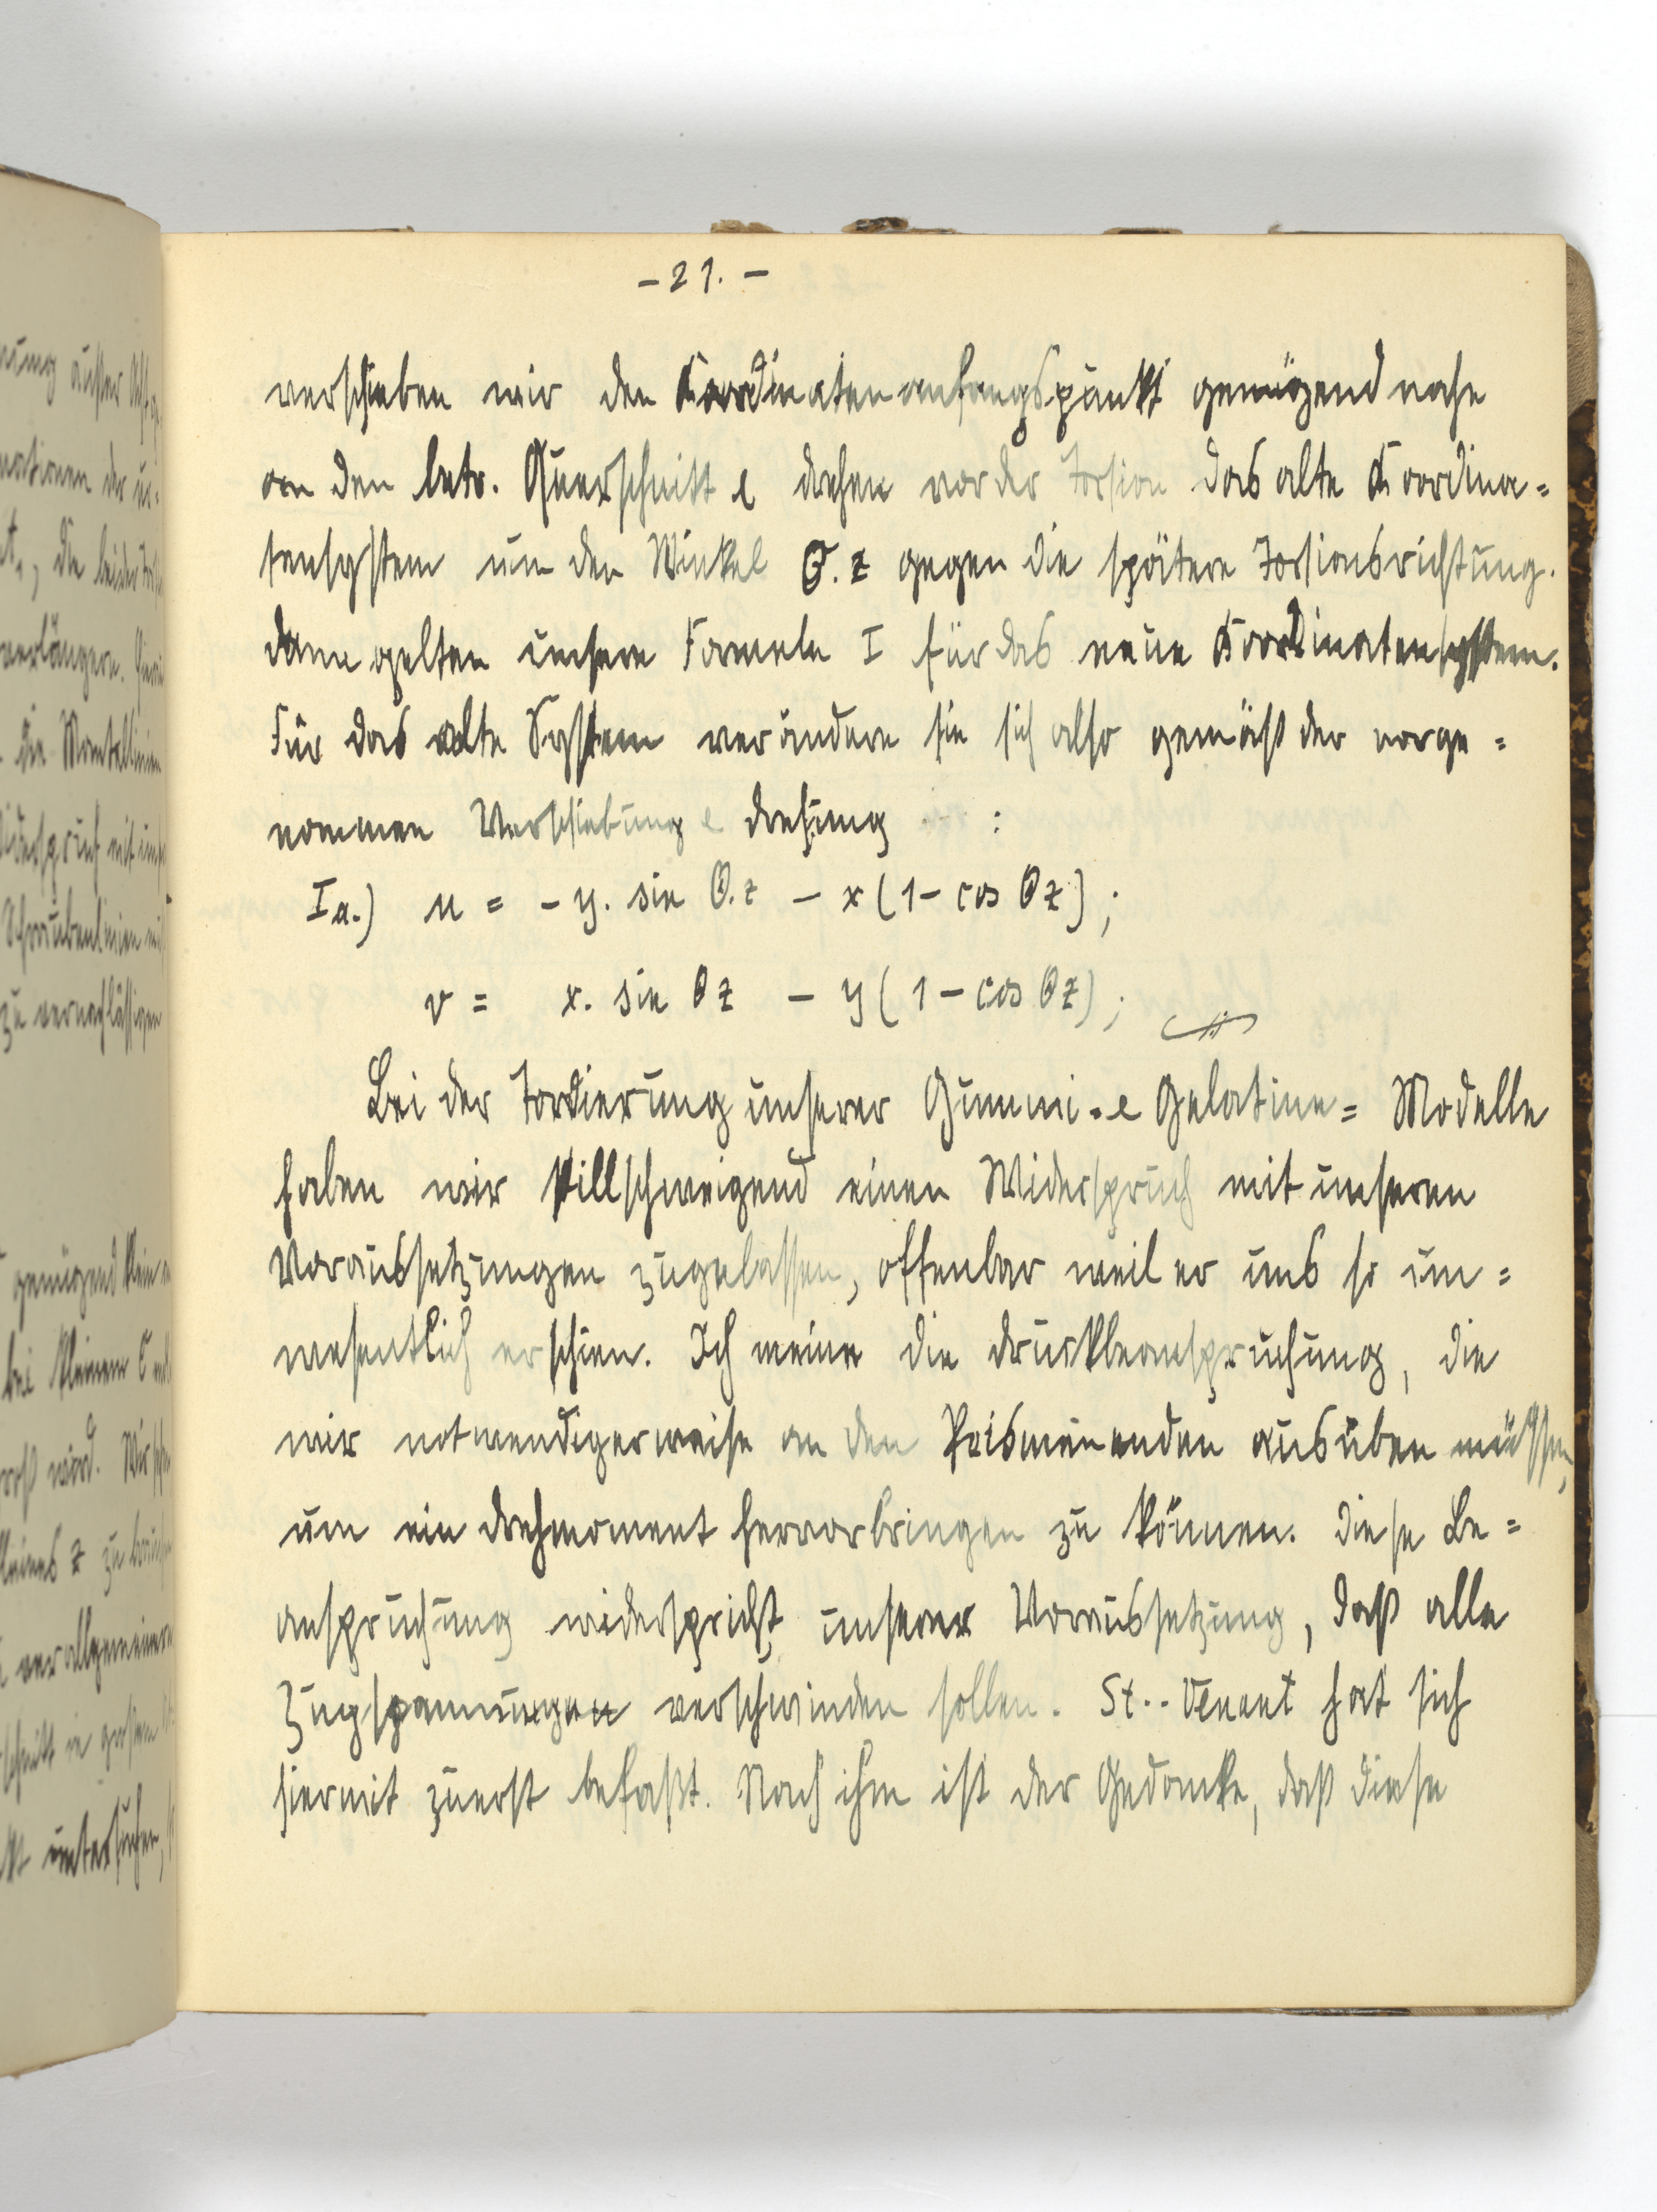 - 21. -
verschieben wir den Koordinatenanfangspunkt genügend nahe
an den betr. Querschnitt & drehen vor der Torsion das alte Koordina=
tensystem um den Winkel Θ. z gegen die spätere Torsionsrichtung.
dann gelten unsere Formeln I für das neue Koordinatensystem.
Für das alte System verändern sie sich also gemäß der vorge=
nommen Verschiebung & drehung :
Ia.) u = - y. sin Θ.z - x (1 - cos Θz) ;
v = x. sin Θz - y (1 - cos Θz) ;
Bei der Tordierung unserer Gummi= & Gelatine= Modelle
haben wir stillschweigend einen Widerspruch mit unseren
Voraussetzungen zugelassen, offenbar weil er uns so un=
wesentlich erschien. Ich meine die druckbeanspruchung, die
wir notwendigerweise an den Prismenenden ausüben müssen,
um ein drehmoment hervorbringen zu können. diese Be=
anspruchung widerspricht unserer Voraussetzung, daß alle
Zugspannungen verschwinden sollen. St.- Venant hat sich
hiermit zuerst befaßt. Nach ihm ist der Gedanke, daß diese